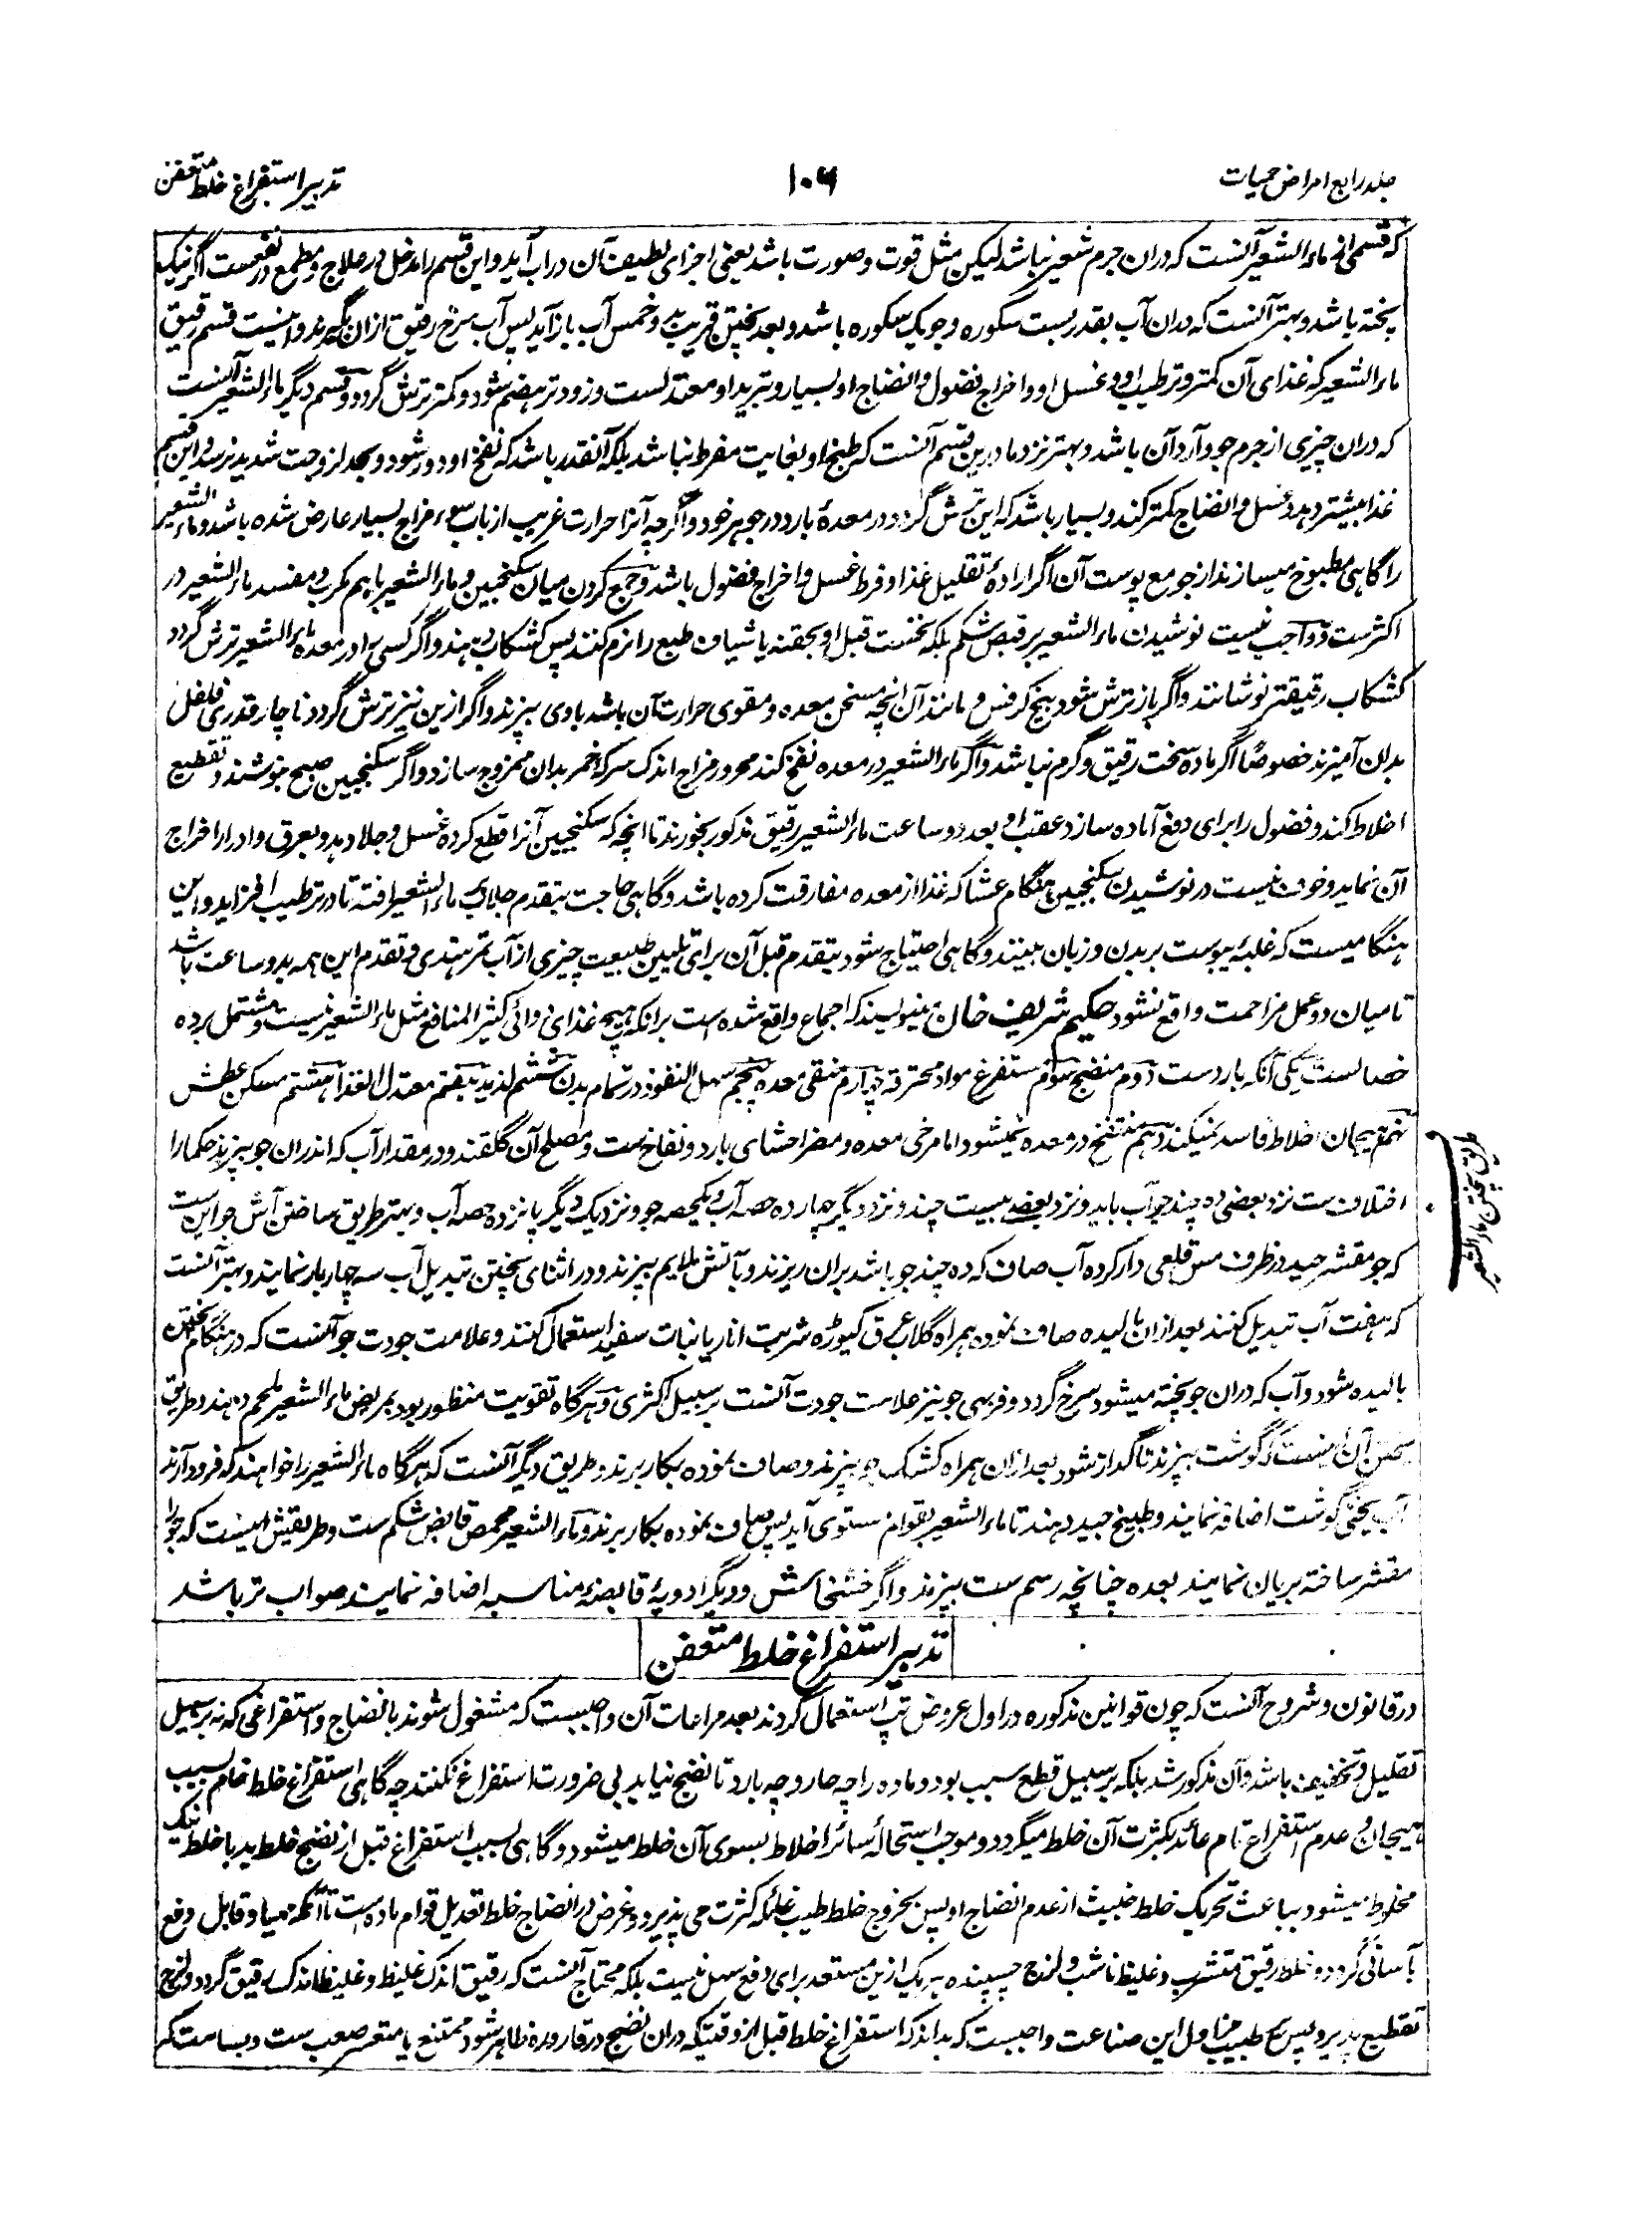 جلد رابع امراض حمیات
۱۰۶
تدبیر استفراغ خلط متعفن
که قسمی از ماء الشعیر آنست که دران جرم شعیر نباشد لیکن مثل قوت و صورت باشد یعنی اجزای لطیف آن در آب آید و این قسم را مدخل در علاج و مطمع در نفعست اگر نیک
پخته باشد و بهتر آنست که دران آب بقدر بست سکوره و جو یک سکوره باشد و بعد پختن قریب بدو خمس آب باز آید پس آب سرخ رقیق ازان بگیرند و اینست قسم رقیق
ماء الشعیر که غذای آن کمتر و ترطیب او و غسل او و اخراج فضول و انضاج او بسیار و تبرید او معتدلست و زودتر هضم شود و کمتر ترش گردد و قسم دیگر ماء الشعیر آنست
که دران چیزی از جرم جو و آرد آن باشد و بهتر نزد ما درین قسم آنست که طبخ او بغایت مفرط نباشد بلکه آنقدر باشد که نفخ او دور شود و بحد لزوجت شدید نرسد و این قسم
غذا بیشتر دهد و غسل و انضاج کمتر کند و بسیار باشد که این ترش گردد در معدهٔ بارد در جوهر خود و اگرچه آنرا حرارت غریب از باب سوء مزاج بسیار عارض شده باشد و ماء الشعیر
را گاهی مطبوخ میسازند از جو مع پوست آن اگر ارادهٔ تقلیل غذا و فرط غسل و اخراج فضول باشد و جمع کردن میان سکنجبین و ماء الشعیر باهم مکرب و مفسد ماء الشعیر در
اکثرست و واجب نیست نوشیدن ماء الشعیر بر قبض شکم بلکه نخست قبل او بحقنه یا شیاف طبع را نرم کنند پس کشکاب دهند و اگر کسی را در معده ماء الشعیر ترش گردد
کشکاب رقیقتر نوشانند و اگر باز ترش شود بیخ کرفس و مانند آن انچه مسخن معده و مقوی حرارت آن باشد با وی بپزند و اگر ازین نیز ترش گردد ناچار قدری فلفل
بدان آمیزند خصوصًا اگر ماده سخت رقیق و گرم نباشد و اگر ماء الشعیر در معده نفخ کند محرور مزاج اندک سرکه خمر بدان ممزوج سازد و اگر سکنجبین صبح بنوشند و تقطیع
اخلاط کند و فضول را برای دفع آماده سازد عقب او بعد دو ساعت ماء الشعیر رقیق مذکور بخورند تا انچه که سکنجبین آنرا قطع کرده غسل و جلا دهد و بعرق و ادرار اخراج
آن نماید و خوف نیست در نوشیدن سکنجبین هنگام عشا که غذا از معده مفارقت کرده باشد و گاهی حاجت بتقدم جلاب بر ماء الشعیر افتد تا در ترطیب افزاید و این
هنگامیست که غلبهٔ یبوست بر بدن و زبان بینند و گاهی احتیاج شود بتقدم قبل آن برای تلیین طبیعت چیزی از آب تمرهندی و تقدم این همه بدو ساعت باشد
تا میان دو عمل مزاحمت واقع نشود حکیم شریف خان مینویسند که اجماع واقع شده است برانکه هیچ غذای دوائی کثیر المنافع مثل ماء الشعیر نیست و مشتمل بر ده
خصالست یکی آنکه باردست دوم منضج سوم مستفرغ مواد محترقه چهارم منقی معده پنجم سهل النفوذ در تمام بدن ششم لذیذ هفتم معتدل الغذا هشتم مسکن عطش
نهم هیجان اخلاط فاسد نمیکند دهم منتفخ در معده نمیشود اما مرخی معده و مضر احشای بارد و نفاخ ست و مصلح آن گلقند و در مقدار آب که اندران جو بپزند حکما را
اختلاف ست نزد بعضی ده چند جو آب باید و نزد بعضی بیست چند و نزد دیگر چهارده حصه آب و یکحصه جو و نزدیک دیگر پانزده حصه آب و بهتر طریق ساختن آش جو این ست
که جو مقشر جید در ظرف مس قلعی دار کرده آب صاف که ده چند جو باشد بران ریزند و بآتش ملایم بپزند و در اثنای پختن تبدیل آب سه چهار بار نمایند و بهتر آنست
که هفت آب تبدیل کنند بعد ازان مالیده صاف نموده همراه گلاب عرق کیوڑه شربت انار یا نبات سفید استعمال کنند و علامت جودت جو آنست که در هنگام پختن
بالیده شود و آب که دران جو پخته میشود سرخ گردد و فربهی جو نیز علامت جودت آنست بر سبیل اکثری و هرگاه تقویت منظور بود بمریض ماء الشعیر ملحم دهند و طریق
پختن آن اینست که گوشت بپزند تا گداز شود بعد ازان همراه کشک جو بپزند و صاف نموده بکار برند و طریق دیگر آنست که هرگاه ماء الشعیر را خواهند که فرود آرند
آب یخنی گوشت اضافه نمایند و طبیخ جید دهند تا ماء الشعیر بقوام مستوی آید پس صاف نموده بکار برند و ماء الشعیر محمص قابض شکم ست و طریقش اینست که جو را
مقشر ساخته بریان نمایند بعده چنانچه رسم ست بپزند و اگر خشخاش و دیگر ادویهٔ قابضه مناسبه اضافه نمایند صواب تر باشد
تدبیر استفراغ خلط متعفن
در قانون و شروح آنست که چون قوانین مذکوره در اول عروض تپ استعمال گردند بعد مراعات آن واجبست که مشغول شوند بانضاج و استفراغی که نه بر سبیل
تقلیل و تخفیف باشد و آن مذکور شد بلکه بر سبیل قطع سبب بود و ماده را چه حار و چه بارد تا نضج نیابد بی ضرورت استفراغ نکنند چه گاهی استفراغ خلط خام بسبب
هیجان و عدم استفراغ تام عائد بکثرت آن خلط میگردد و موجب استحالهٔ سائر اخلاط بسوی آن خلط میشود و گاهی بسبب استفراغ قبل از نضج خلط بد با خلط نیک
مخلوط میشود بباعث تحریک خلط خبیث از عدم انضاج او پس بخروج خلط طیب غائله کثرت می پذیرد و غرض در انضاج خلط تعدیل قوام ماده است تا آنکه مهیا و قابل دفع
بآسانی گردد و خلط رقیق متشرب و غلیظ ناشب و لزج چسپنده هر یک ازین مستعد برای دفع سهل نیست بلکه محتاج آنست که رقیق اندک غلیظ و غلیظ اندک رقیق گردد و لزج
تقطیع پذیرد پس بر طبیب مزاول این صناعت واجبست که بداند که استفراغ خلط قبل از وقتیکه دران نضج در قاروره ظاهر شود ممتنع یا متعسر صعب ست و بساست که